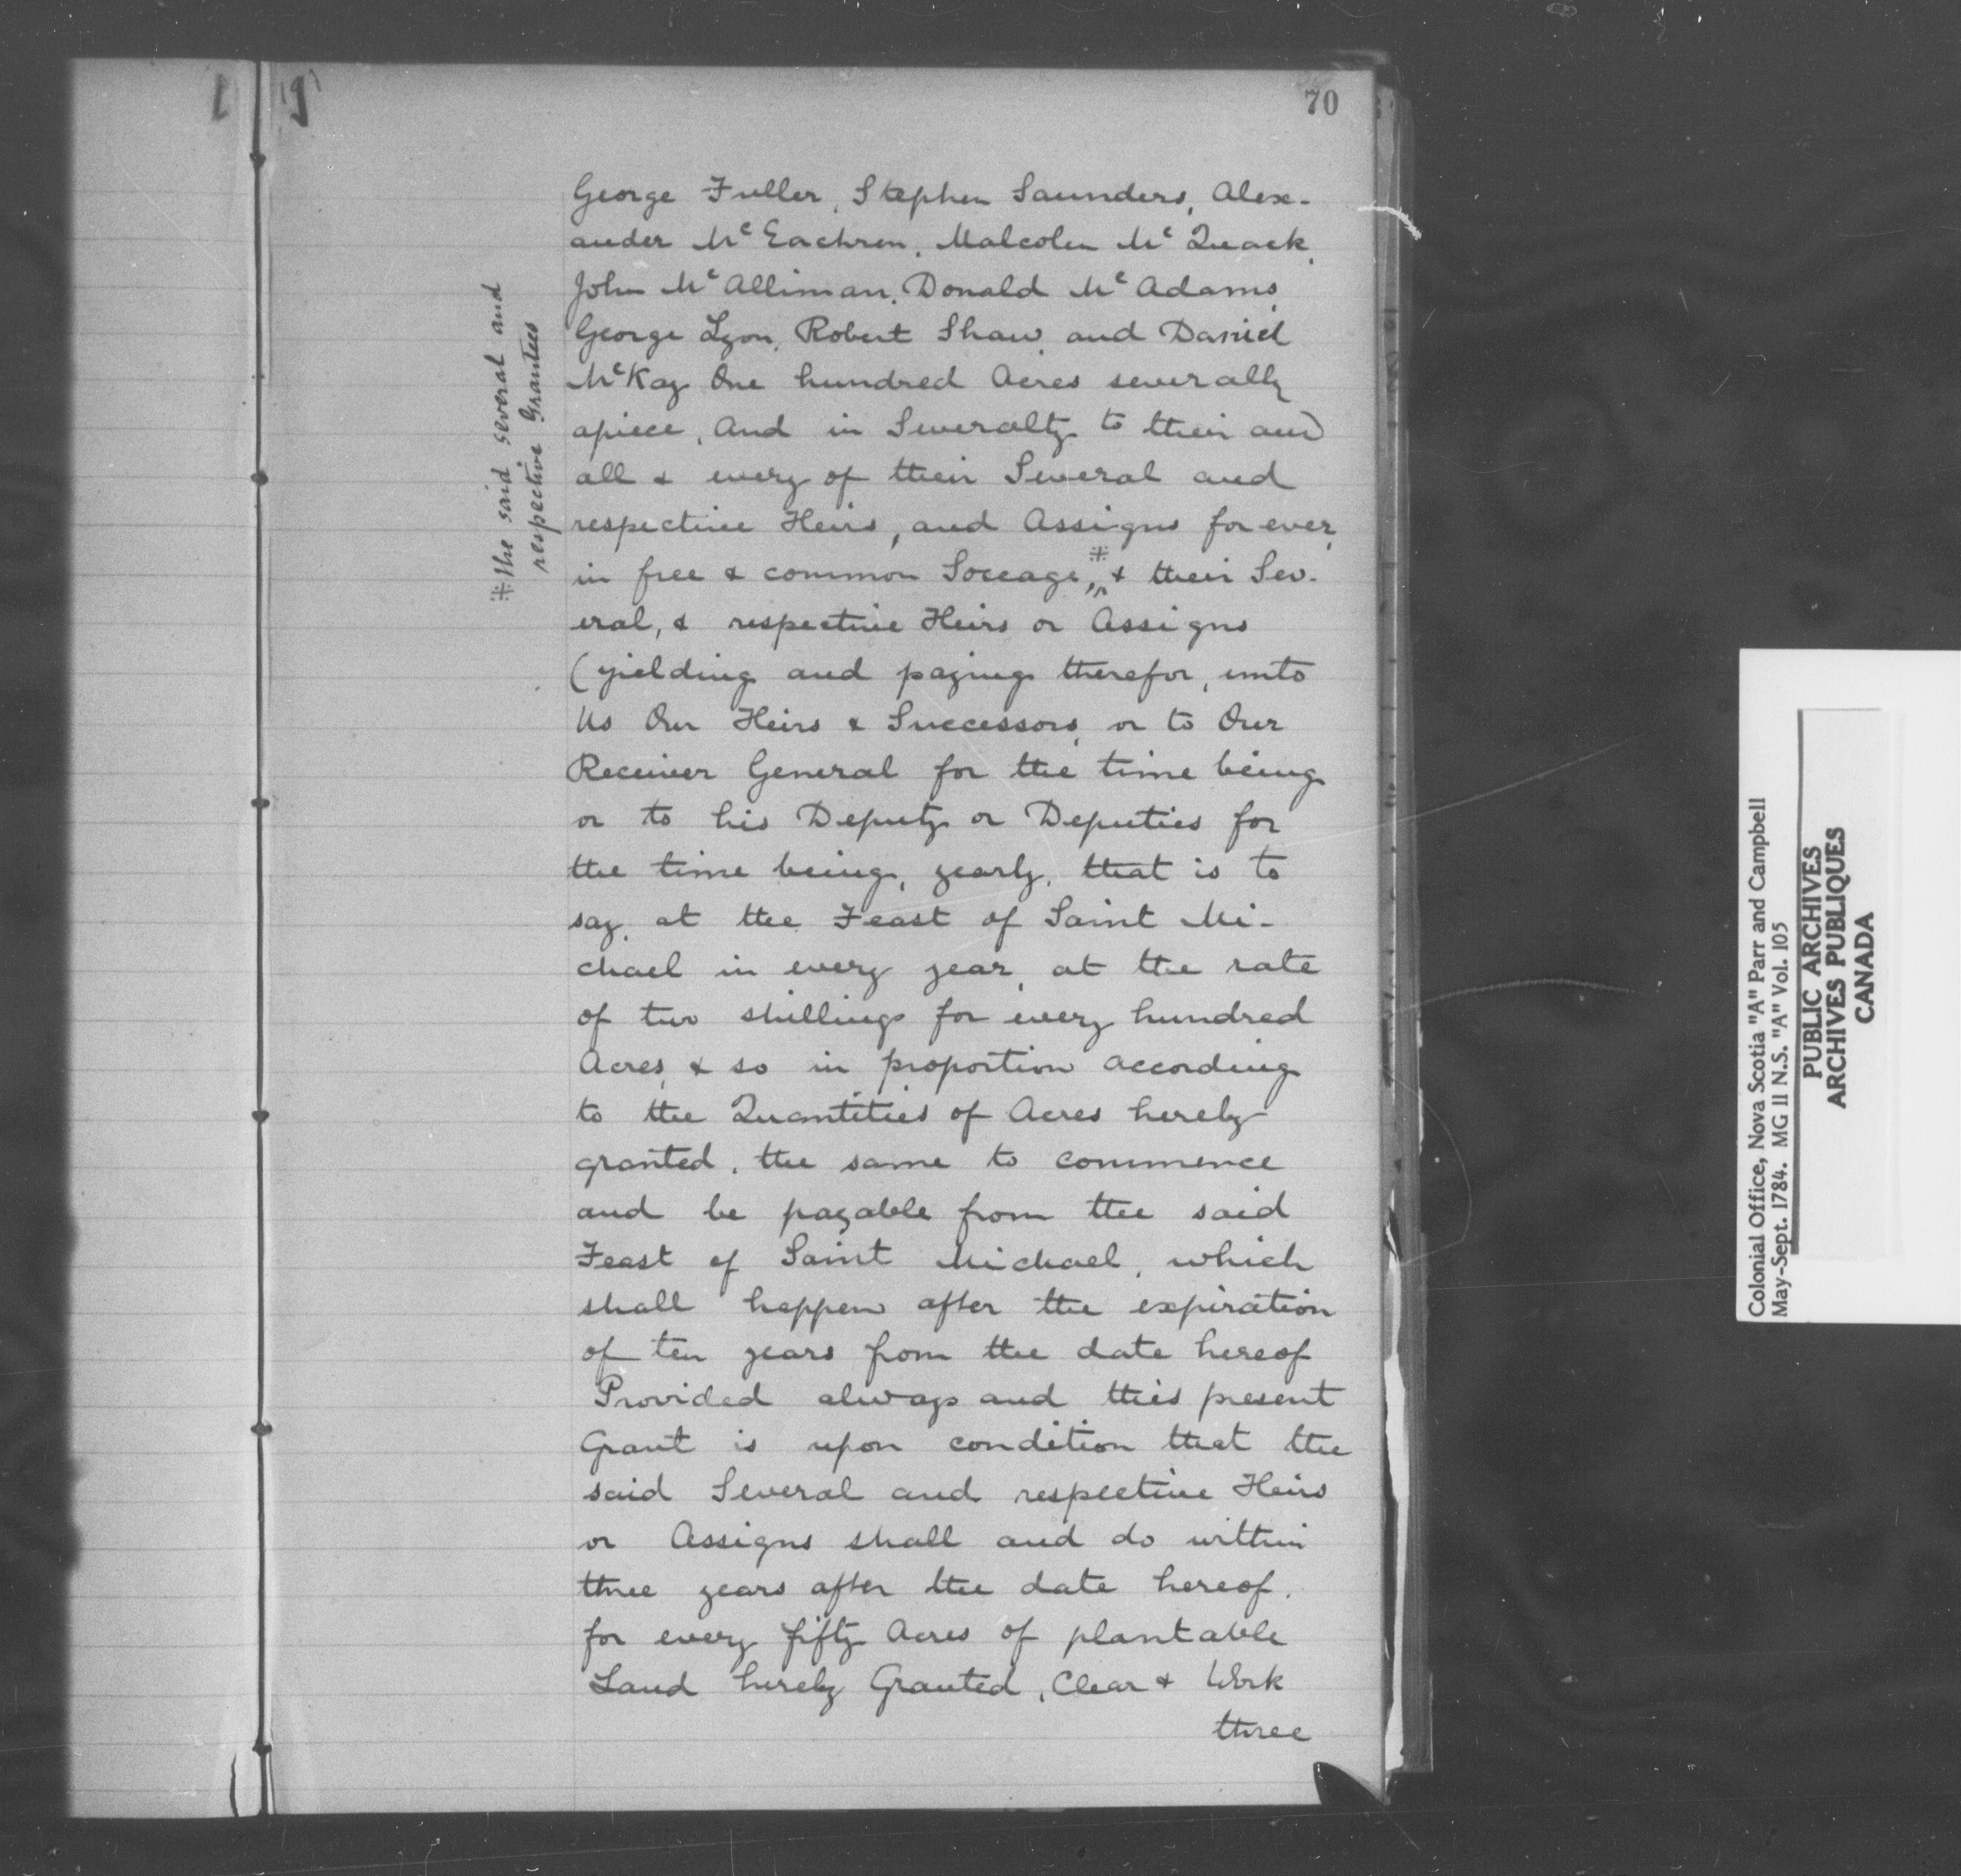 70
George Fuller, Stephen Saunders, Alex-
ander McEachren, Malcolm McQuack,
John McAlliman, Donald McAdams,
George Lyon, Robert Shaw, and Daniel
McKay One hundred Acres severally
apiece, And in Severalty to their and
all & every of their Several and
respective Heirs, and Assigns for ever,
in free & common Soccage,※ & their Sev-
eral, & respective Heirs or Assigns
(yielding and paying therefor, unto
Us Our Heirs & Successors, or to Our
Receiver General for the time being
or to his Deputy or Deputies for
the time being, yearly, that is to
say, at the Feast of Saint Mi-
chael in every year, at the rate
of two shillings for every hundred
Acres, & so in proportion according
to the Quantities of Acres hereby
granted, the same to commence
and be payable from the said
Feast of Saint Michael, which
shall happen after the expiration
of ten years from the date hereof
Provided always and this present
Grant is upon condition that the
said Several and respective Heirs
or Assigns shall and do within
three years after the date hereof,
for every fifty Acres of plantable
Land hereby Granted, Clear & Work
three
※the said several and
respective Grantees
Colonial Office, Nova Scotia "A" Parr and Campbell
May-Sept. 1784. MG 11 N.S. "A" Vol. 105
PUBLIC ARCHIVES
ARCHIVES PUBLIQUES
CANADA